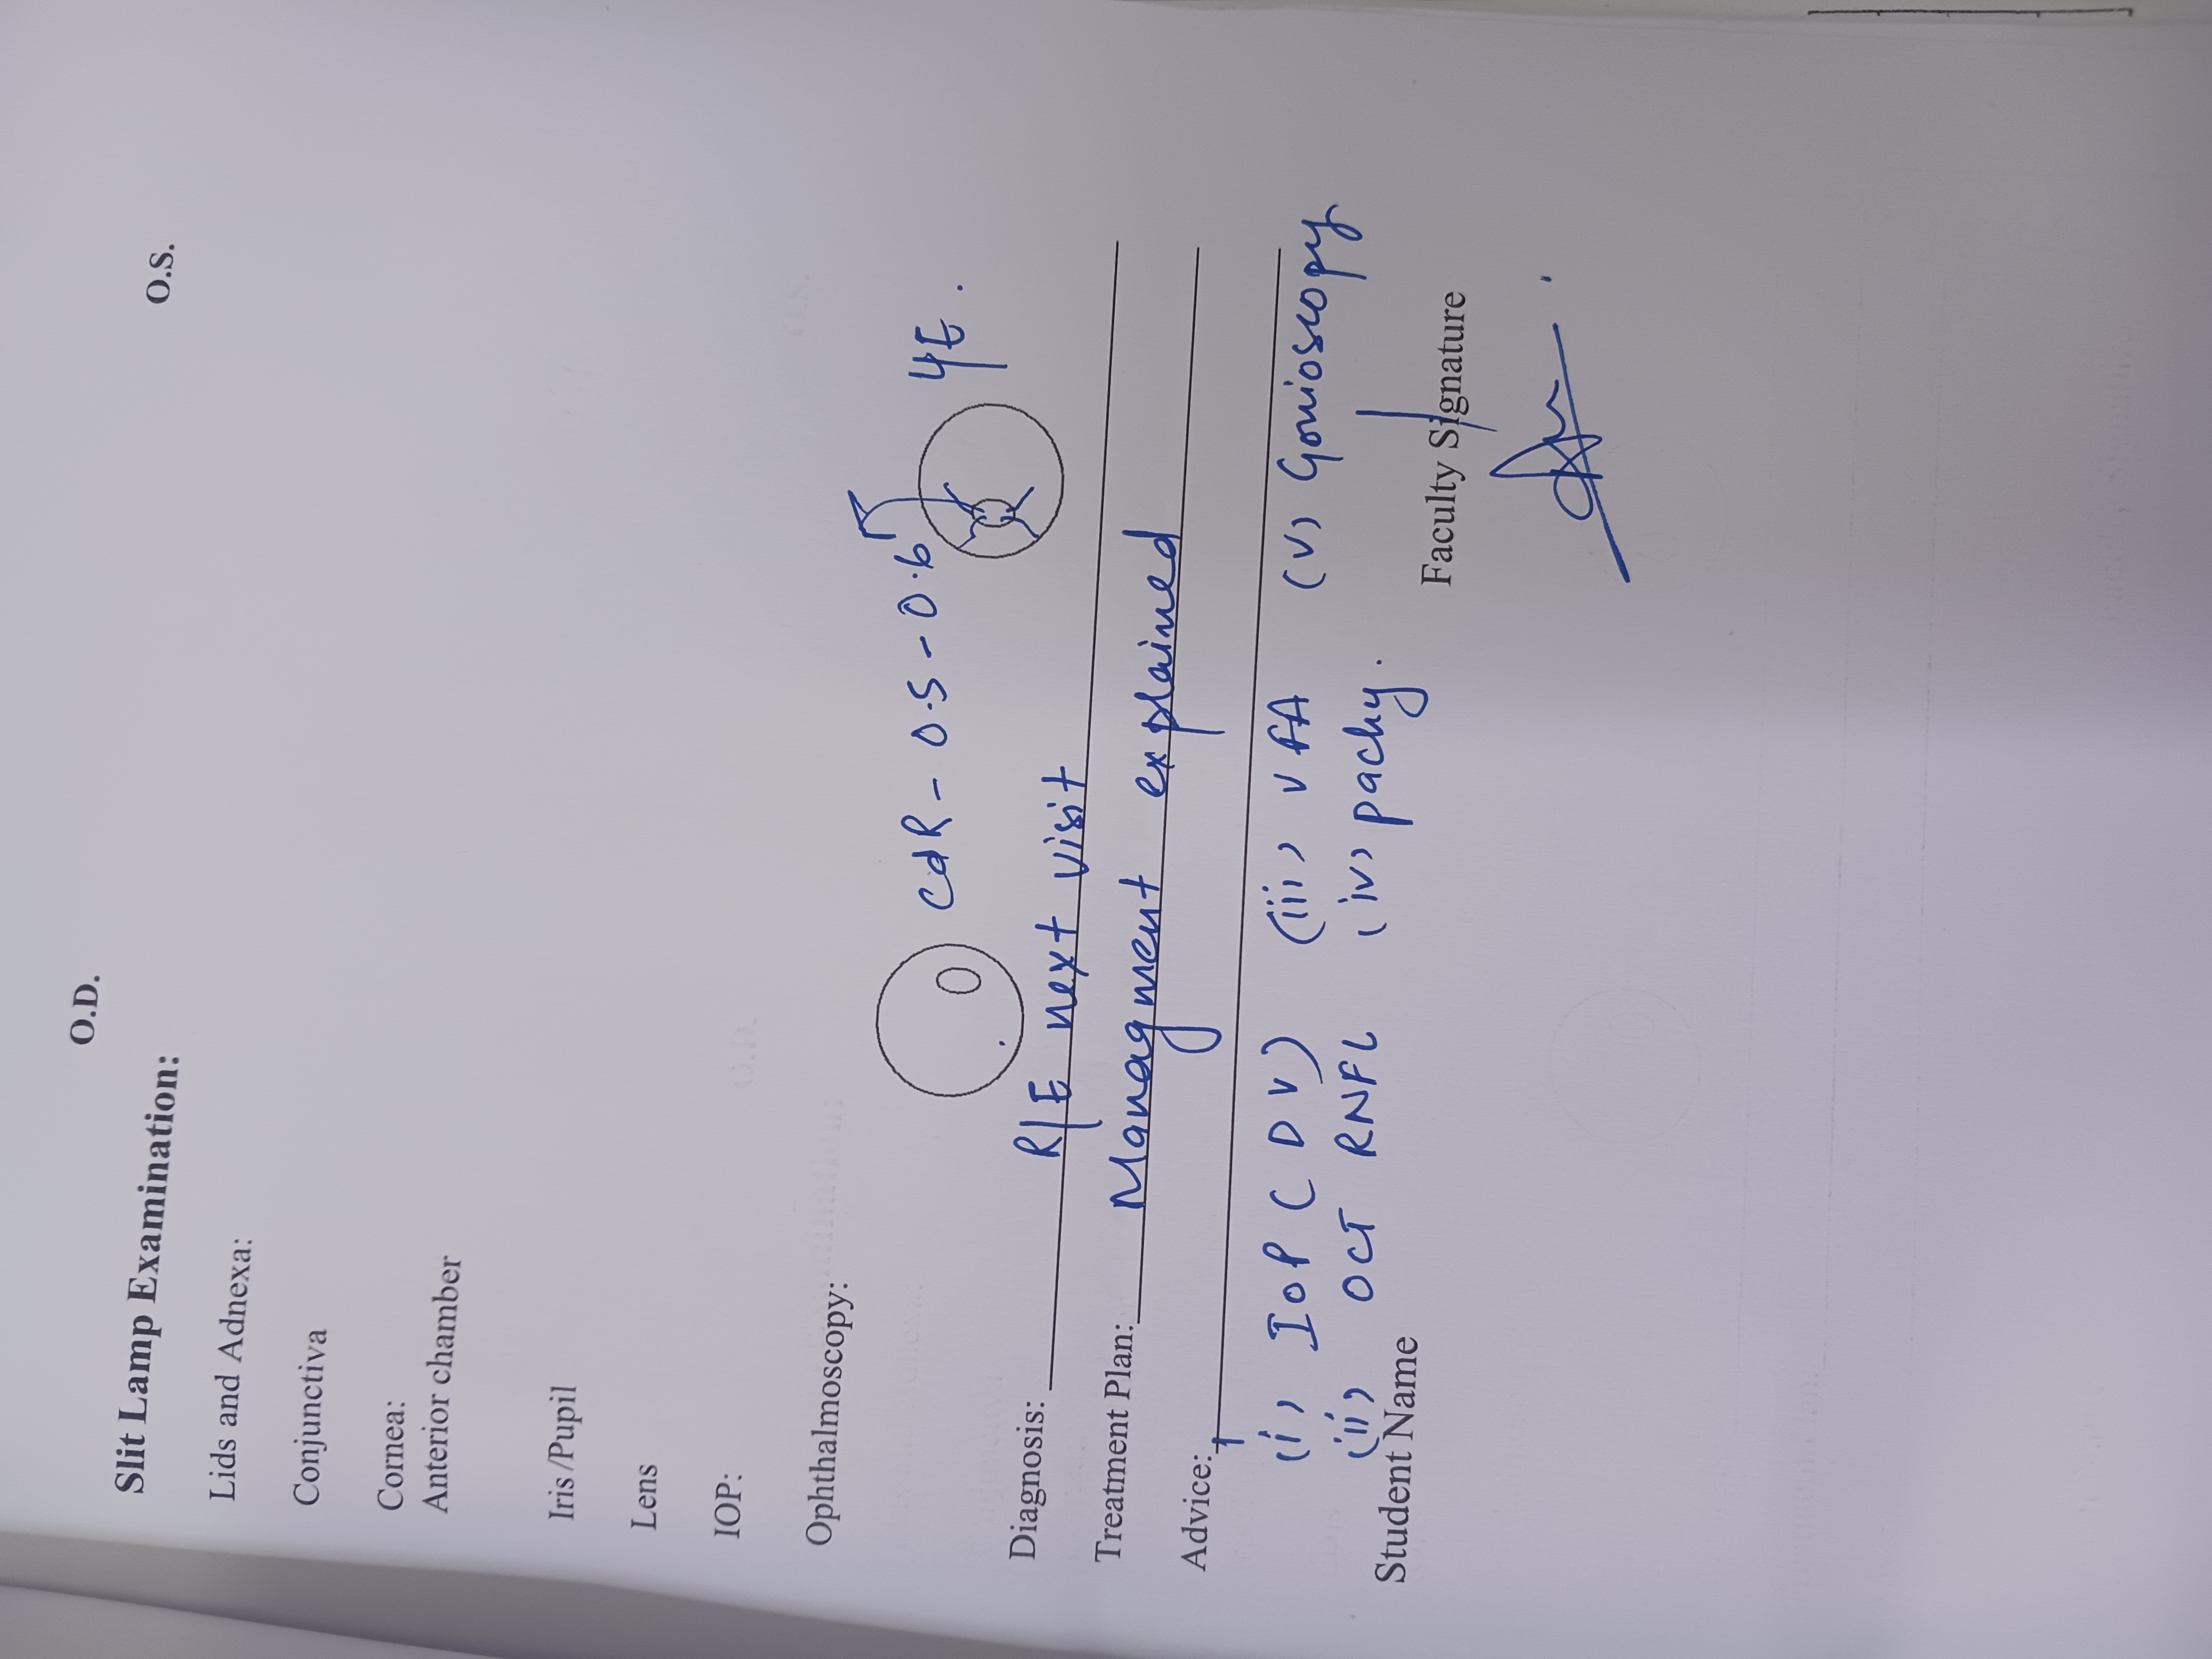 O.D.
O.S.
Slit Lamp Examination:
Lids and Adnexa:
Conjunctiva
Cornea:
Anterior chamber
Iris /Pupil
Lens
IOP:
Ophthalmoscopy:
CdR - 0.5 - 0.6
Diagnosis: R/E next visit
Treatment Plan: Managment explained
Advice:
(i) IOP (DV) (iii) VFA (v) Gonioscopy
(ii) OCT RNFL (iv) pachy.
Student Name
Faculty Signature